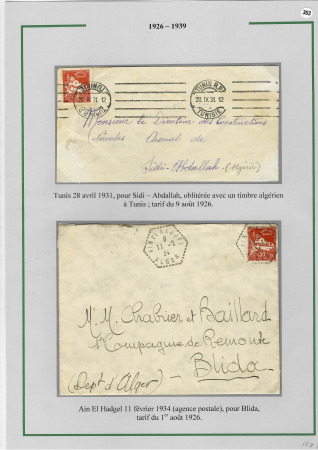 382
1926 - 1939
TUNIS R.P.
28 IV 31. 12
TUNISIE
Monsieur le Directeur des Constructions
Navales Arsenal de
Sidi-Abdallah (Algérie)
Tunis 28 avril 1931, pour Sidi – Abdallah, oblitérée avec un timbre algérien
à Tunis ; tarif du 9 août 1926.
AIN EL HADGEL
8
11 -2
34
ALGER
M. M. Chabrier et Baillard
1e Compagnie de Remonte
Blida
(Dept d'Alger)
Ain El Hadgel 11 février 1934 (agence postale), pour Blida,
tarif du 1er août 1926.